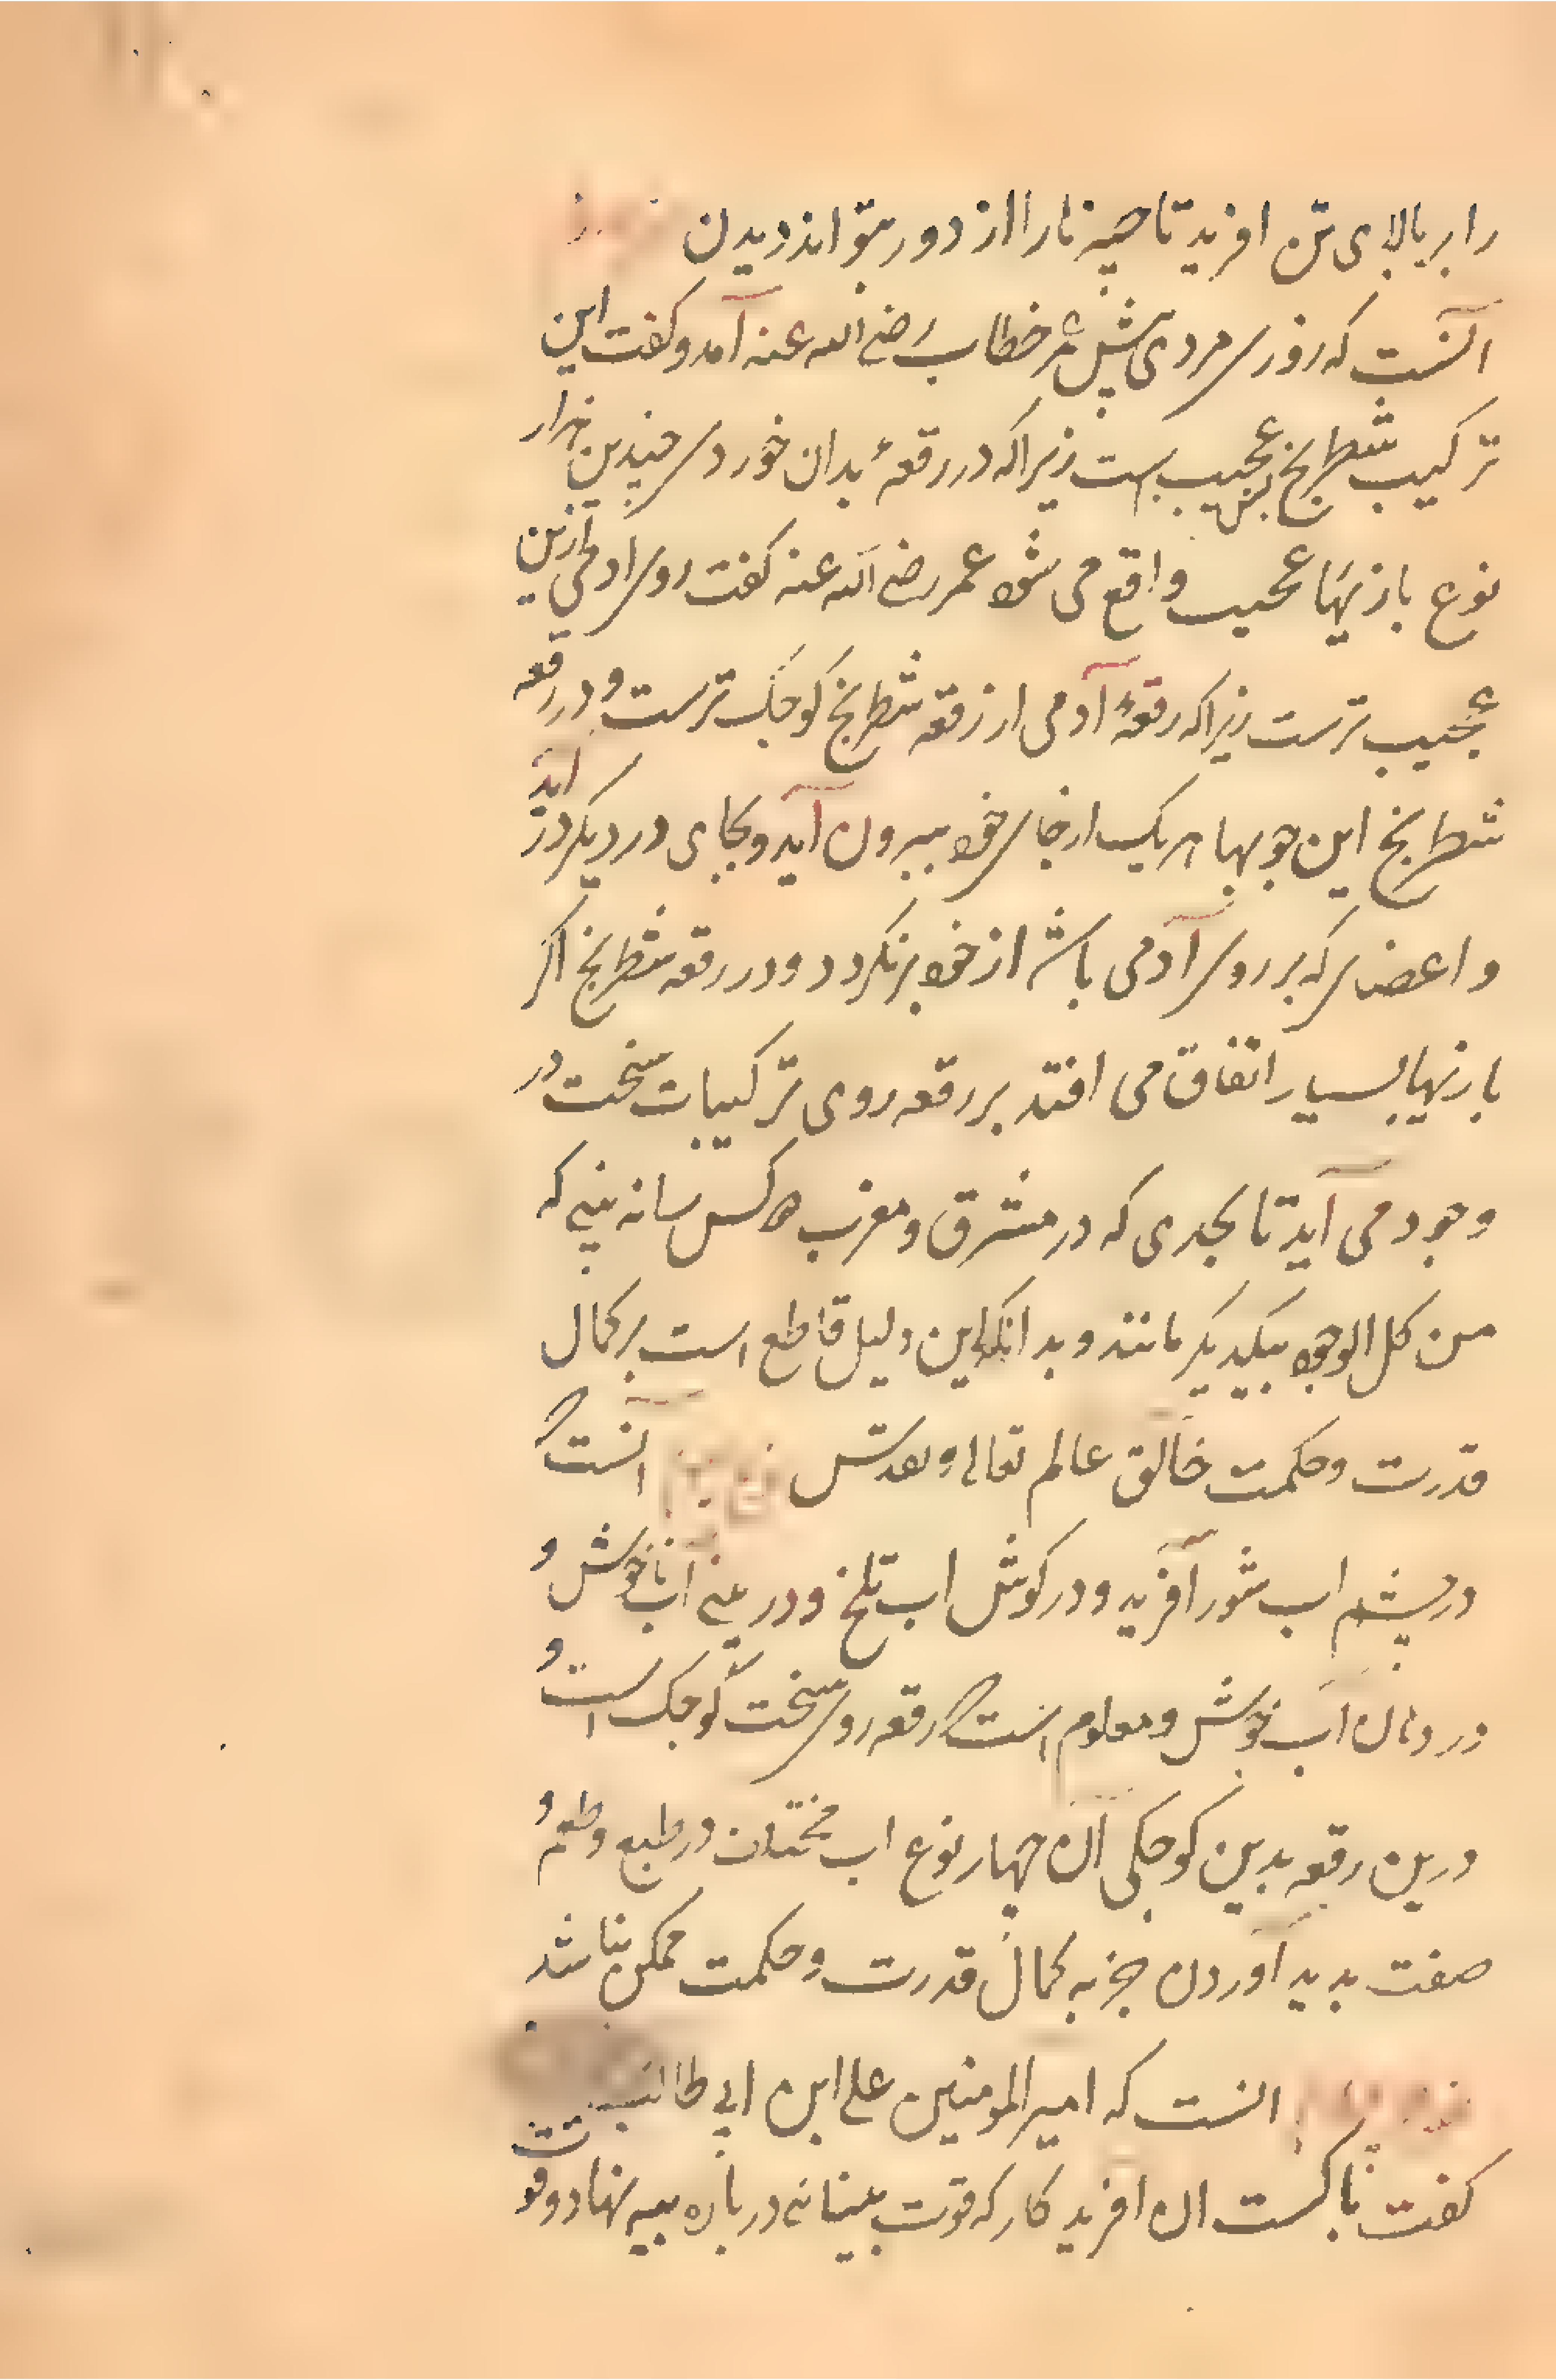 را بر بالای تن افرید تا چیزها را از دور بتواند دیدن
آنست که روزی مردی پیش عمر خطاب رضی الله عنه آمد و کفت این
ترکیب شطرنج بس عجیب است زیرا که در رقعهٔ بدان خوردی چندین هزار
نوع بازیهاء عجیب واقع می شود عمر رضی الله عنه کفت روی ادمی ازین
عجیب ترست زیرا که رقعهٔ آدمی از رقعه شطرنج کوجک ترست و در رقعه
شطرنج این جوبها هر یک از خای خود بیرون آید و بجای در دیکر در اید
و اعضای که بر روی آدمی باشد از خود برنکردد و در رقعه شطرنج اکر
بازیها بسیار اتفاق می افتد بر رقعه روی ترکیبات سخت در
وجود می آید تا بحدی که در مشرق و مغرب دو کس را نه بینی که
من کل الوجوه بیکدیکر مانند و بدانکه این دلیل قاطع است بر کمال
قدرت و حکمت خالق عالم تعالی و تقدس آنست که
در چشم اب شور آفرید و در کوش اب تلخ و در بینی آب ناخوش و
در دهان اب خوش و معلوم است که رقعه روی سخت کوجک است و
درین رقعه بدین کوجکی ان چهار نوع اب مختلف در طبع و طعم و
صفت بدید آوردن جز به کمال قدرت و حکمت ممکن نباشد
انست که امیر المومنین علی ابن ابی طالب
کفت باکست ان افریدکار که قوت بینائی در باره بیه نهاد و قوت